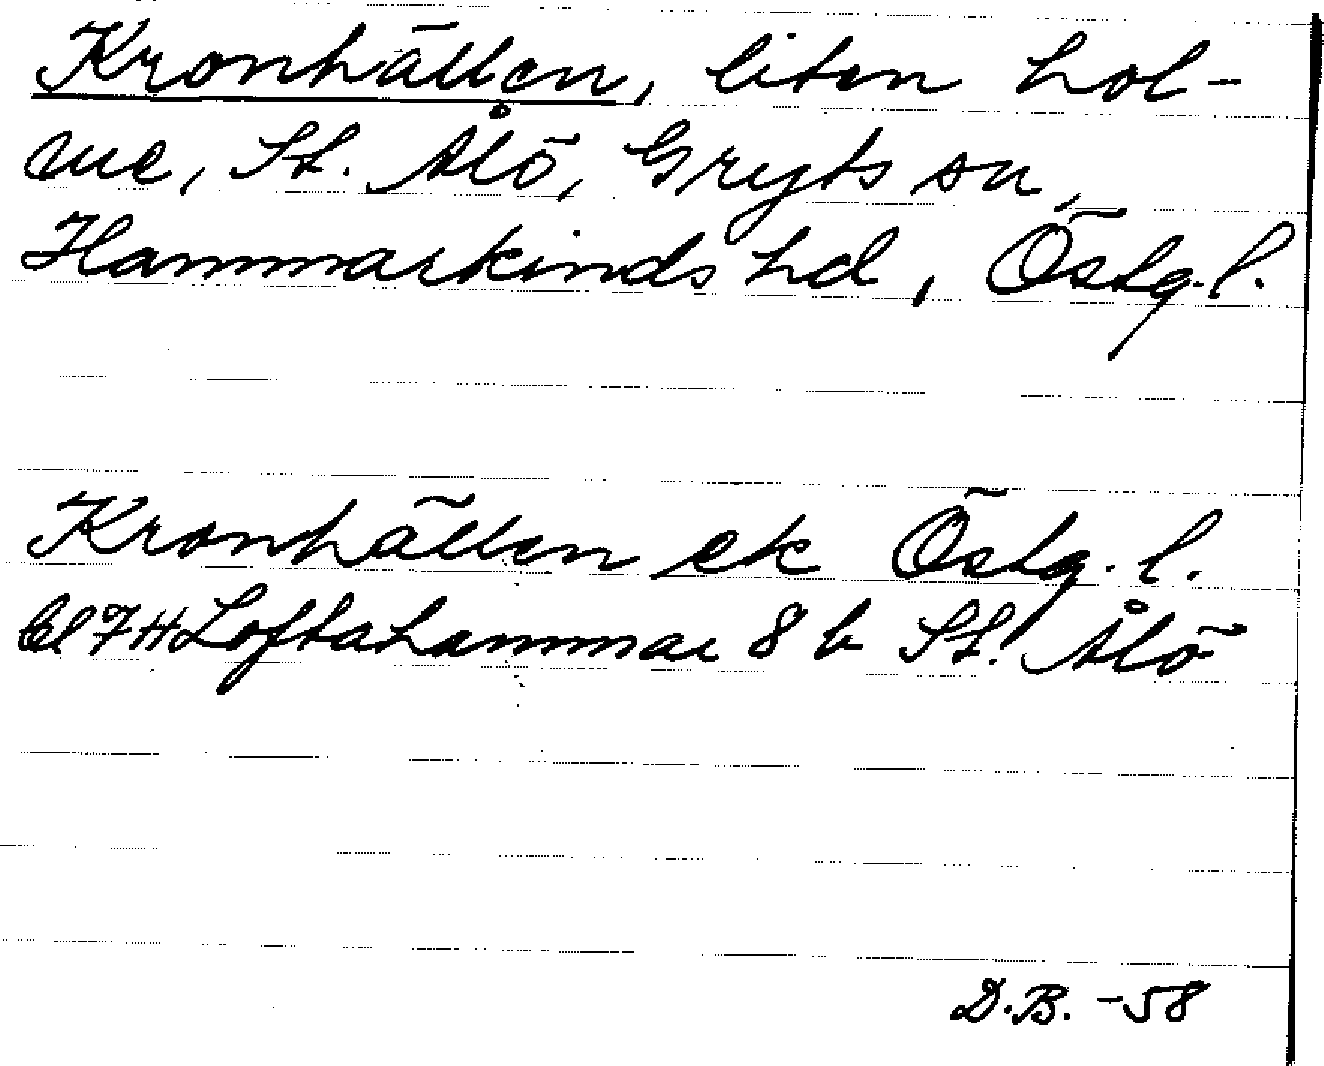 Kronhällen, liten hol-
me, St. Ålö, Gryts sn,
Hammarkinds hd, Östg. l.
Kronhällen ek Östg. l.
Bl 7H Loftahammar 8 b St. Ålö
D.B. -58